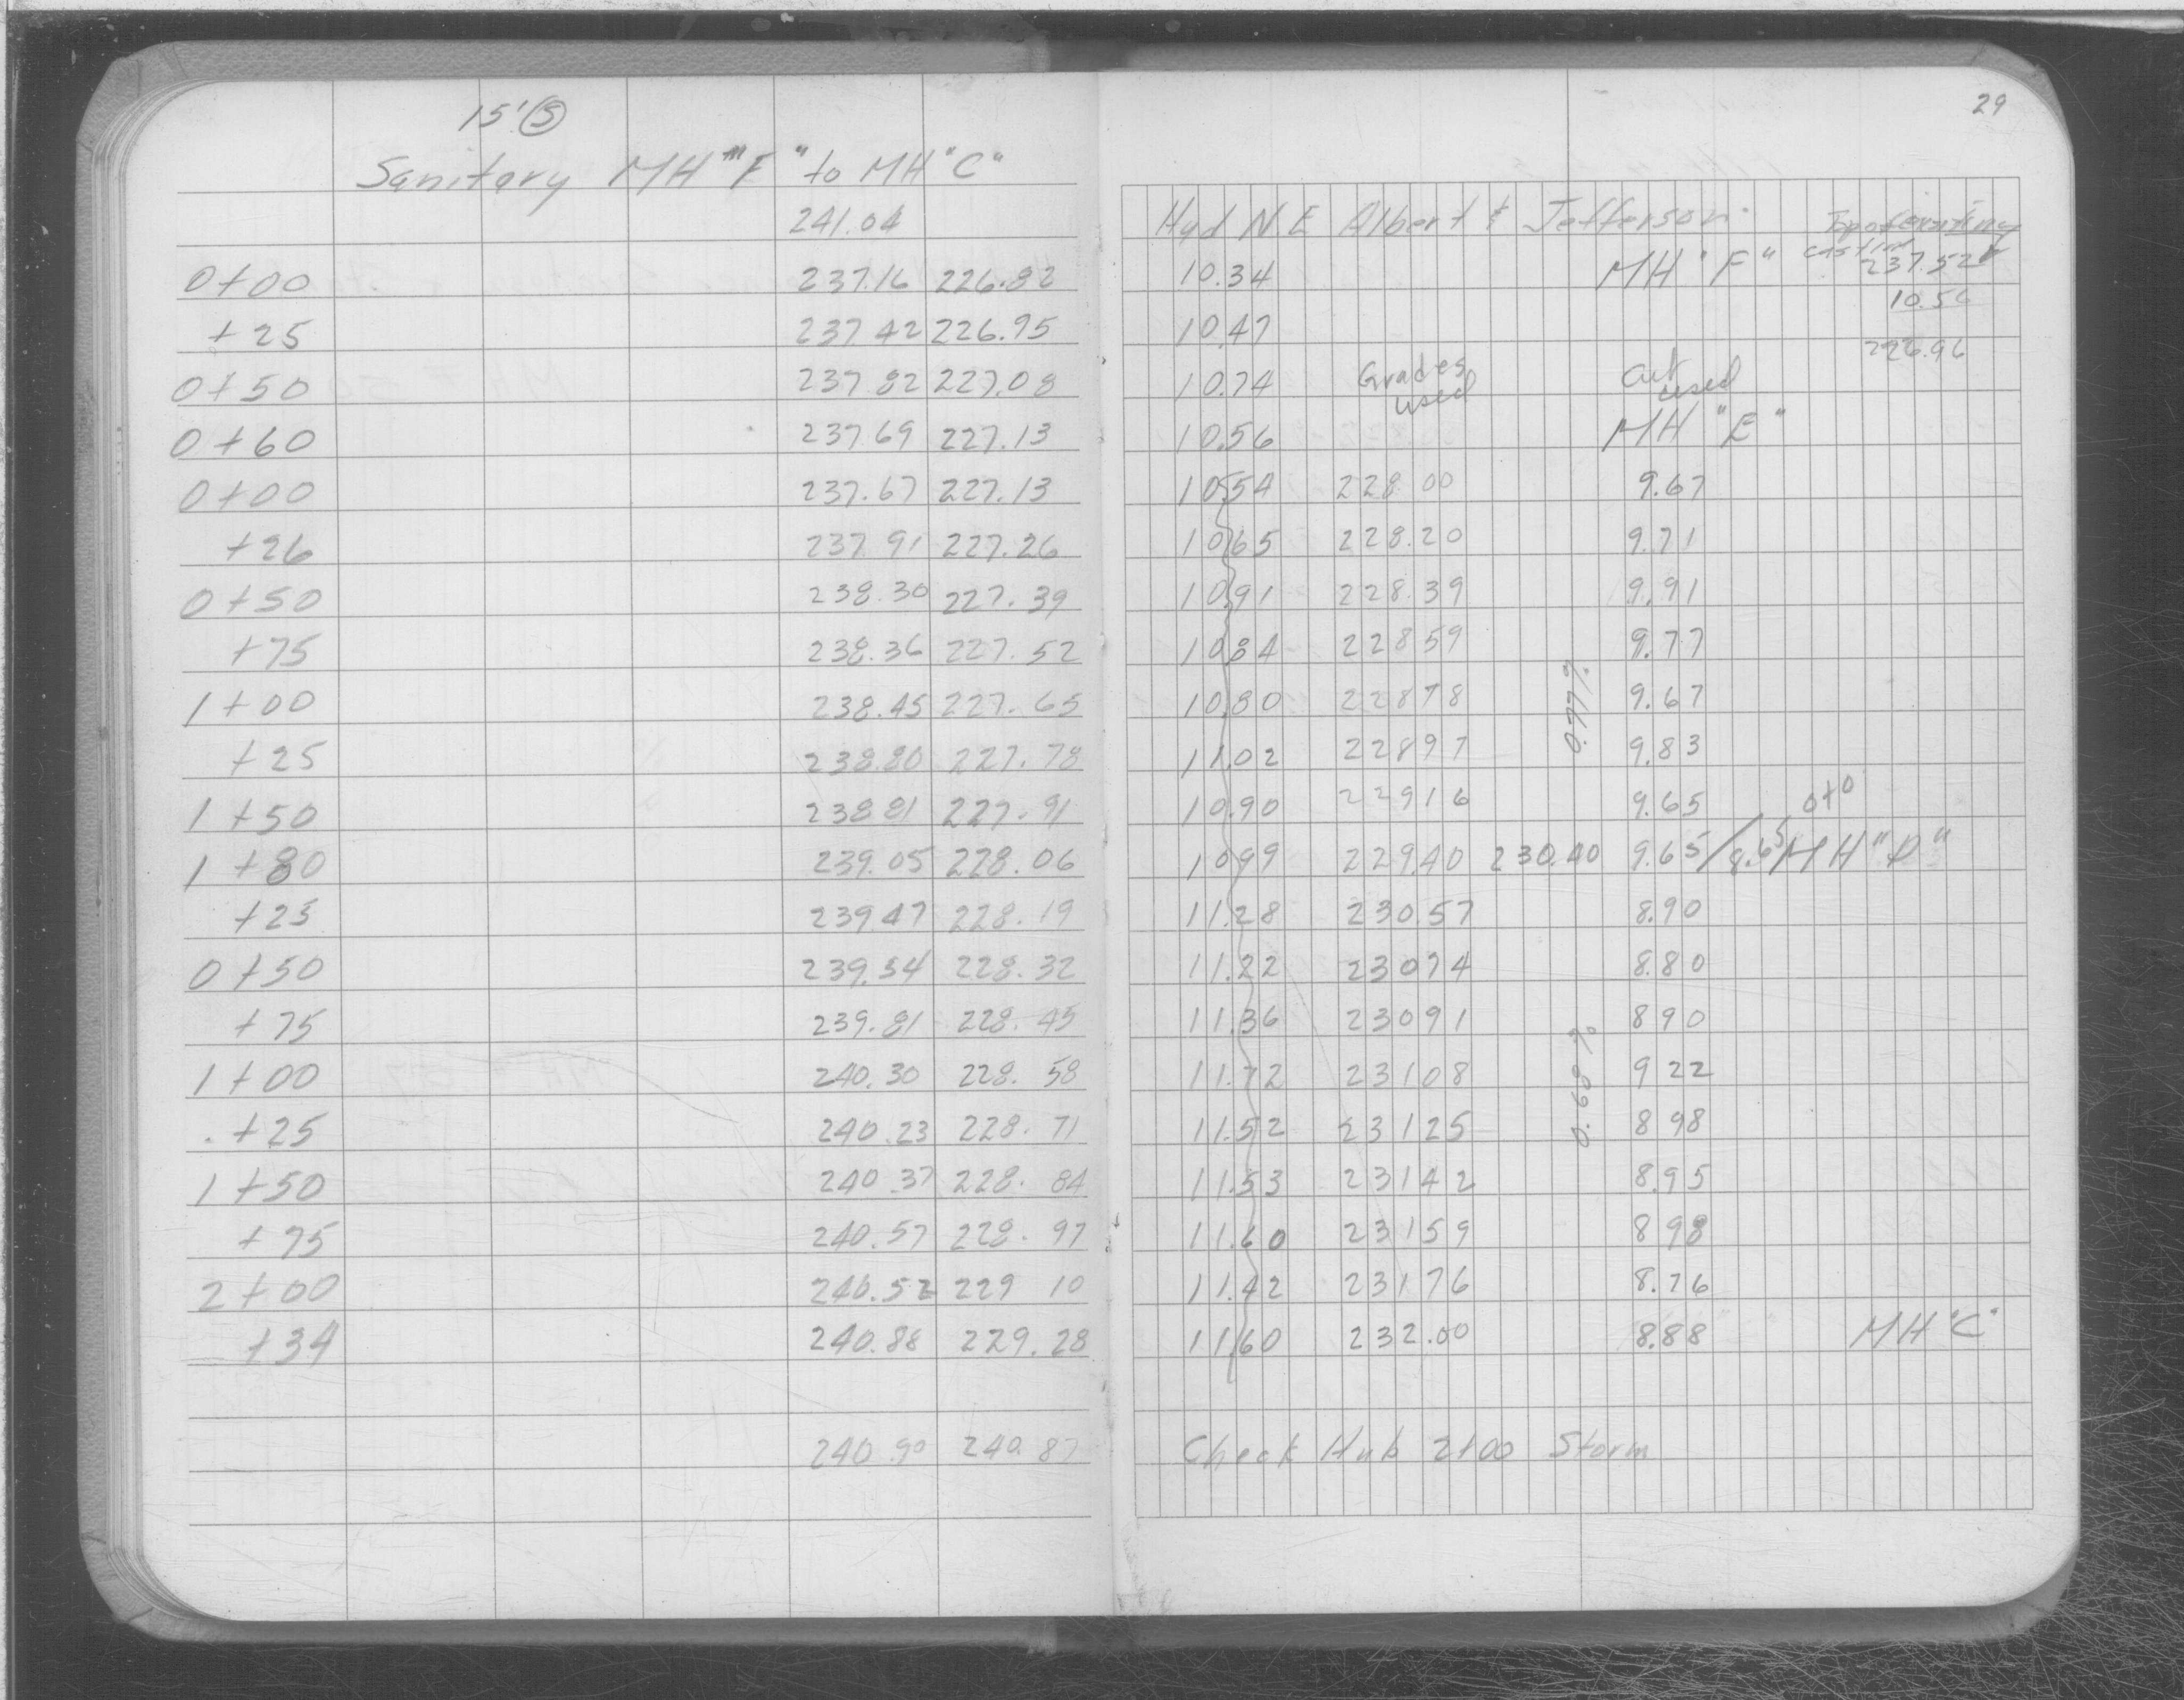 29
15' (S)
Sanitary MH "F" to MH "C"
241.04 Hyd N.E Albert & Jefferson Top of existing casting
0+00 237.16 226.82 10.34 MH "F" 237.52
10.56
+25 237 42 226.95 10.47
226.96
0+50 237.82 227.08 10.74 Grades used Cut used
0+60 237 69 227.13 10.56 MH "E"
0+00 237.67 227.13 10.54 228 00 9.67
+26 237 91 227.26 10 65 228.20 9.71
0+50 238.30 227.39 10.91 228.39 9.91
+75 238.36 227.52 10 84 228 59 9.77
1+00 238.45 227.65 10.80 228 78 0.77% 9.67
+25 238.80 227.78 11.02 228 97 9.83
1+50 238 81 227.91 10.90 229 16 9.65 0+0
1+80 239.05 228.06 10 99 229.40 230.40 9.65/8.65 MH "D"
+25 239.47 228.19 11.28 230.57 8.90
0+50 239.54 228.32 11.22 230 74 8.80
+75 239.81 228.45 11.36 230 91 8 90
1+00 240.30 228.58 11.72 231 08 0.68% 9 22
+25 240.23 228.71 11.52 231 25 8 98
1+50 240.37 228.84 11.53 231 42 8.95
+75 240.57 228.97 11.60 231 59 8 98
2+00 240.52 229 10 11.42 231 76 8.76
+34 240.88 229.28 11.60 232.00 8.88 MH "C"
240.90 240.87 Check Hub 2+00 Storm